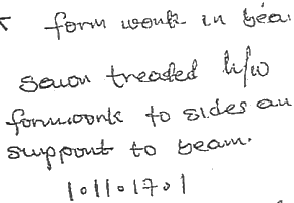 form work in bea
treaded b/w
formwork to sides an
support to beam.
1.1.17.1